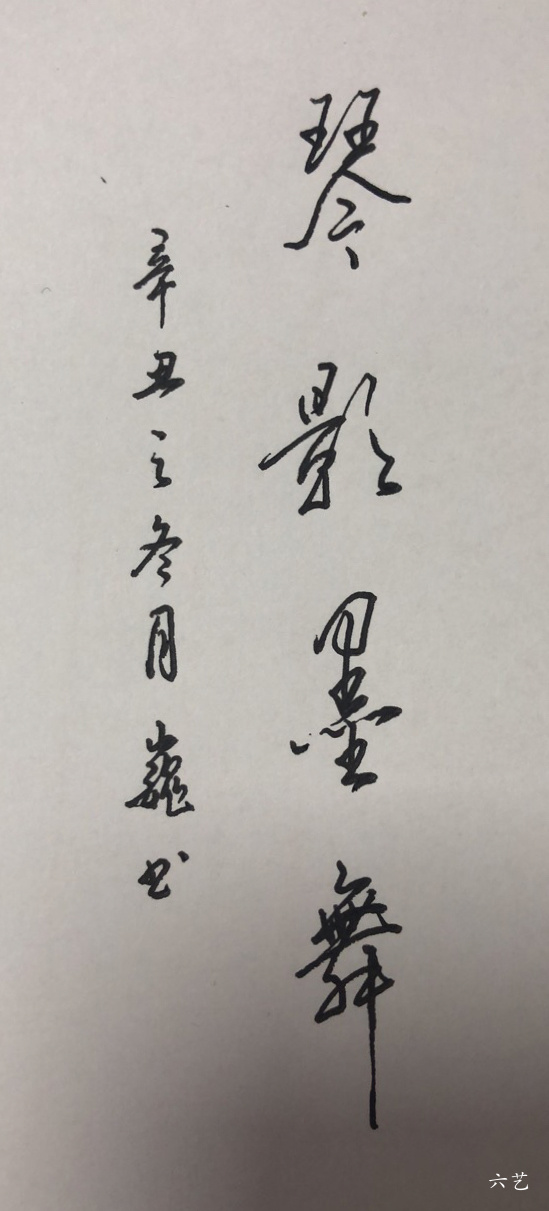 琴影墨舞
辛丑之冬月巍书
六艺